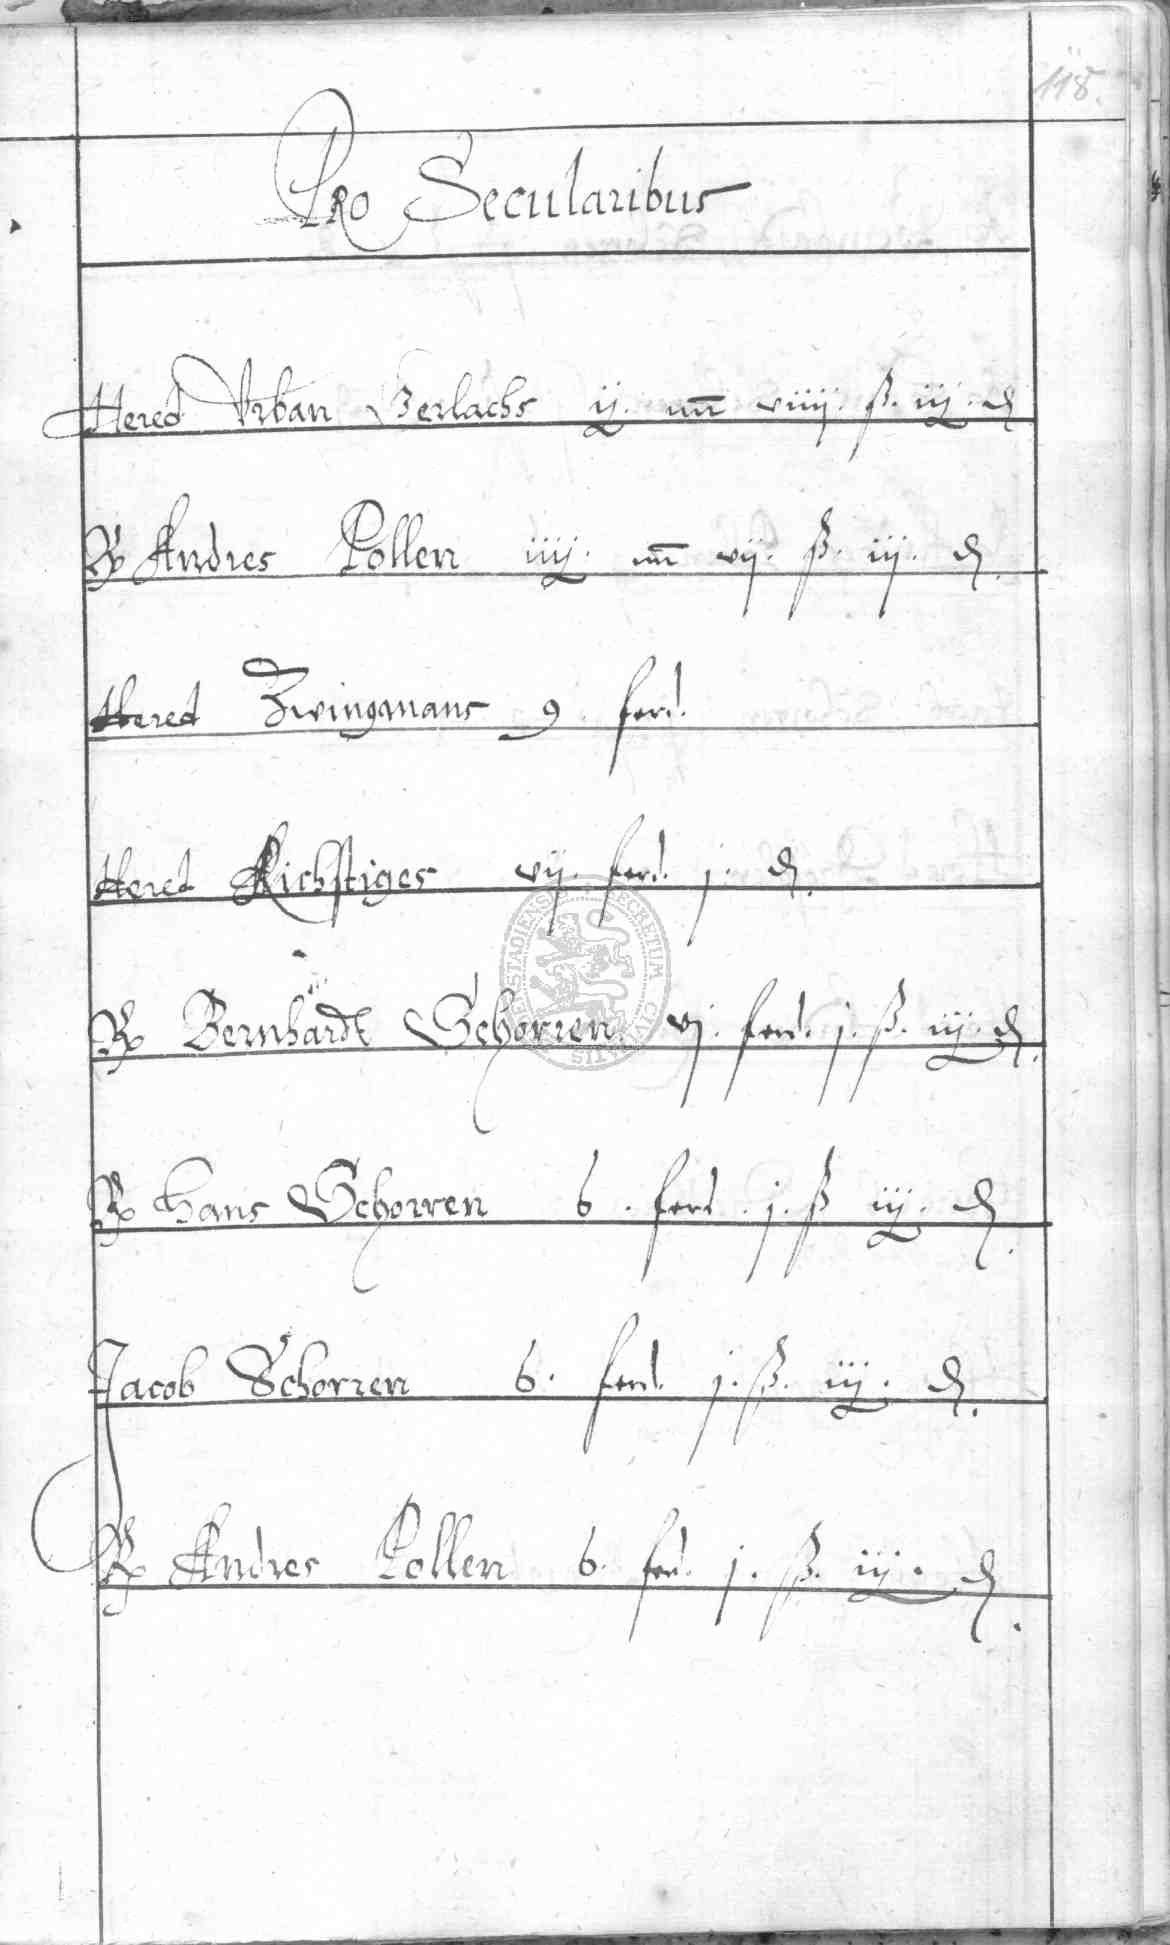 118.
Pro Secularibus
Hered Vrban Gerlachs ij. m viiij. ß. iij. d
Andres Pollen iiij. m vij. ß. iij. d.
Hered Zwingmans 9 ferd.
Hered Richstiges vij. ferd. j. d.
Bernhardt Schorren vj. ferd. j. ß. iij. d.
Hans Schorren 6. ferd. j. ß iij. d.
Jacob Schorren 6. ferd. j. ß. iij. d.
Andres Pollen 6. ferd. j. ß. iij. d.
SECRETUM CIVITATIS